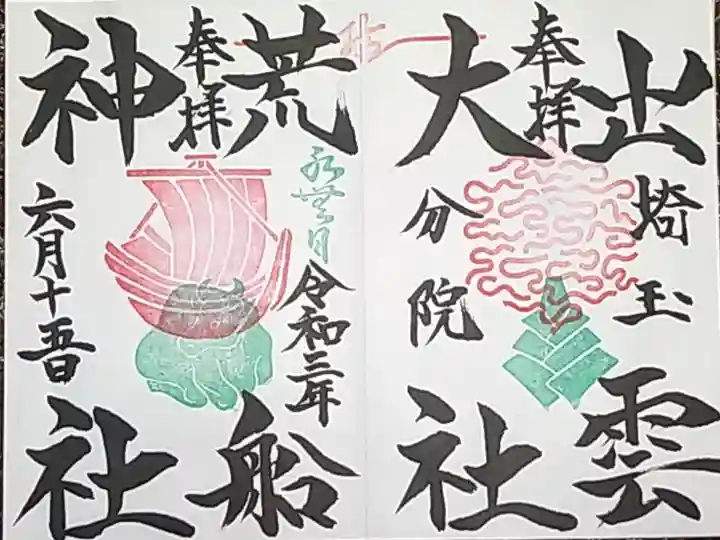 出雲
埼玉
奉拝
大社
分院
荒船
水無月
令和三年
奉拝
神社
六月十五日